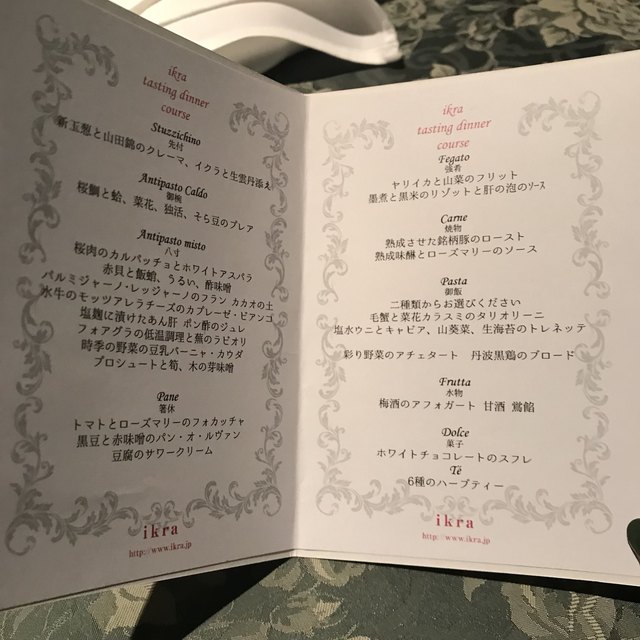 ikra
tasting dinner
course
Stuzzichino
先付
新玉葱と山田錦のクレーマ、イクラと生雲丹添え
Antipasto Caldo
御椀
桜鯛と蛤、菜花、独活、そら豆のブレア
Antipasto misto
八寸
桜肉のカルパッチョとホワイトアスパラ
赤貝と飯蛸、うるい、酢味噌
パルミジャーノ・レッジャーノのフラン カカオの土
水牛のモッツアレラチーズのカプレーゼ・ビアンコ
塩麹に漬けたあん肝 ポン酢のジュレ
フォアグラの低温調理と蕪のラビオリ
時季の野菜の豆乳バーニャ・カウダ
プロシュートと筍、木の芽味噌
Pane
箸休
トマトとローズマリーのフォカッチャ
黒豆と赤味噌のパン・オ・ルヴァン
豆腐のサワークリーム
ikra
http://www.ikra.jp
ikra
tasting dinner
course
Fegato
強肴
ヤリイカと山菜のフリット
墨煮と黒米のリゾットと肝の泡のソース
Carne
焼物
熟成させた銘柄豚のロースト
熟成味醂とローズマリーのソース
Pasta
御飯
二種類からお選びください
毛蟹と菜花カラスミのタリオリーニ
塩水ウニとキャビア、山葵菜、生海苔のトレネッテ
彩り野菜のアチェタート 丹波黒鶏のブロード
Frutta
水物
梅酒のアフォガート 甘酒 鶯餡
Dolce
菓子
ホワイトチョコレートのスフレ
Té
6種のハーブティー
ikra
http://www.ikra.jp